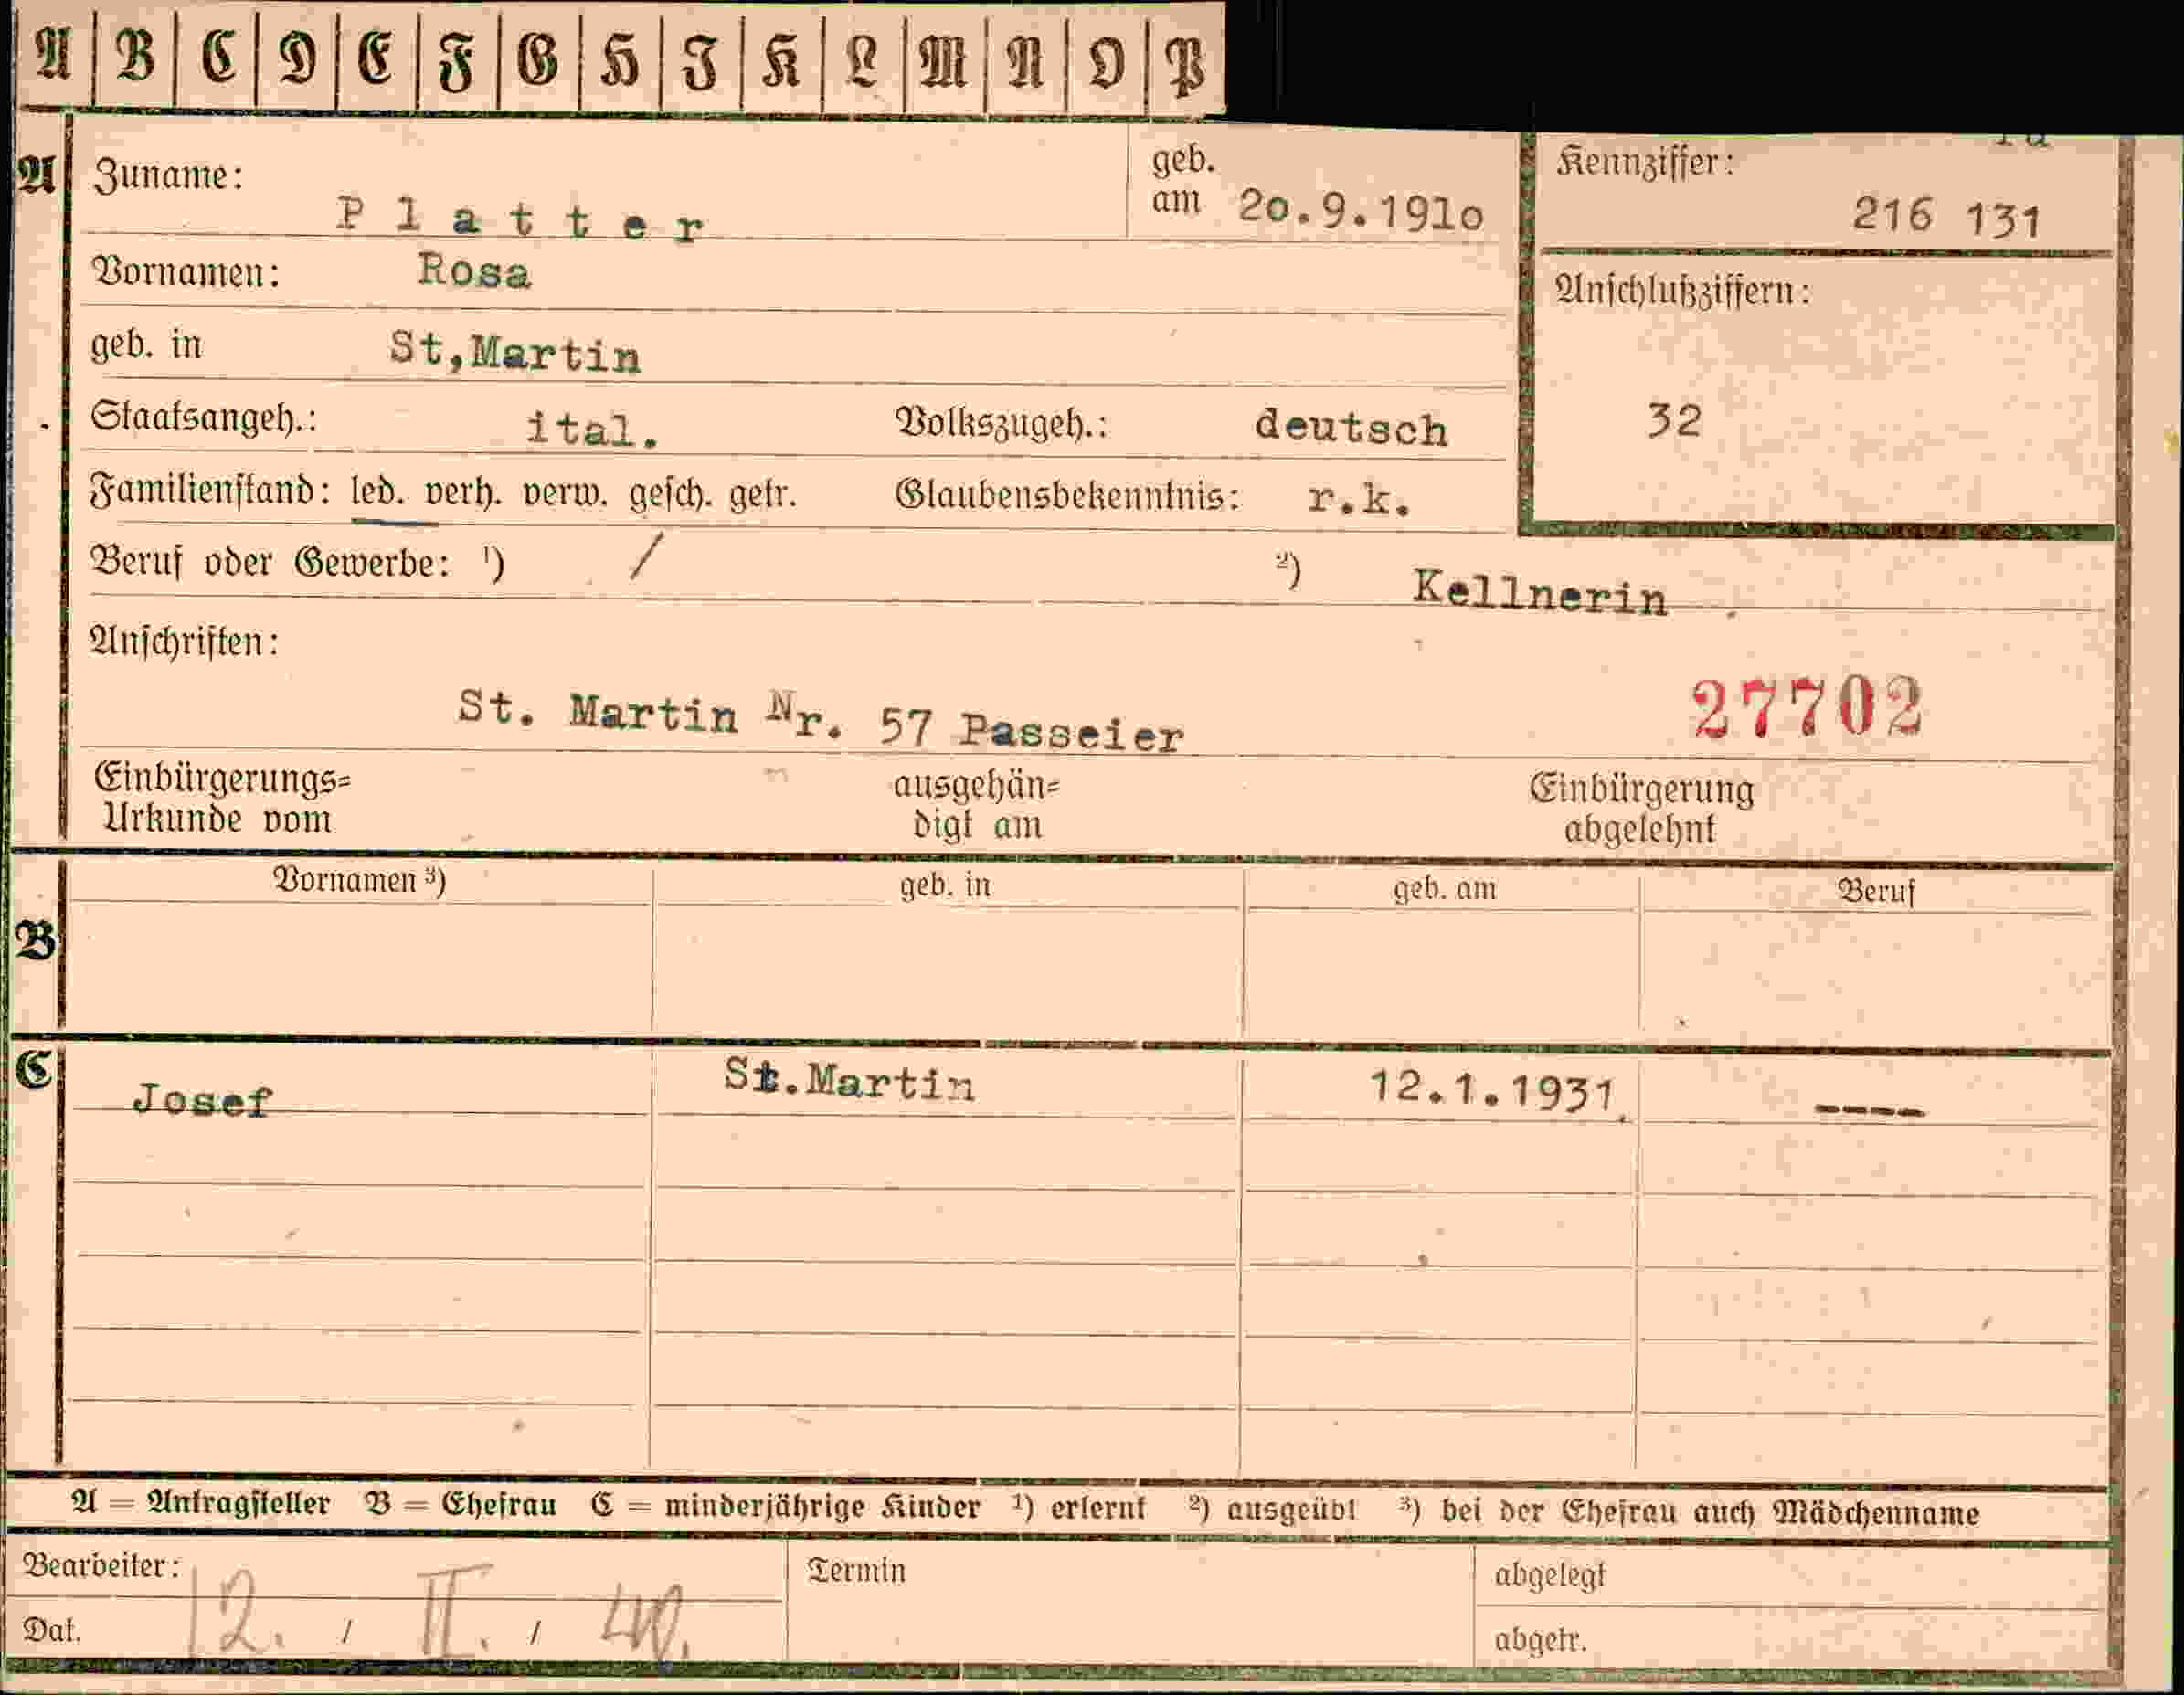 A B C D E F G H I K L M N O P
A Zuname: Platter geb. am 20.9.1910
Kennziffer: 216 131
Vornamen: Rosa
Anschlußziffern:
geb. in St,Martin
Staatsangeh.: ital. Volkszugeh.: deutsch 32
Familienstand: led. verh. verw. gesch. getr. Glaubensbekenntnis: r.k.
Beruf oder Gewerbe: ¹) / ²) Kellnerin
Anschriften:
St. Martin Nr. 57 Passeier 27702
Einbürgerungs= ausgehän= Einbürgerung
Urkunde vom digt am abgelehnt
Vornamen ³) geb. in geb. am Beruf
B
C Josef St.Martin 12.1.1931 ----
A = Antragsteller B = Ehefrau C = minderjährige Kinder ¹) erlernt ²) ausgeübt ³) bei der Ehefrau auch Mädchenname
Bearbeiter: Termin abgelegt
Dat. 12. / II. / 40. abgetr.